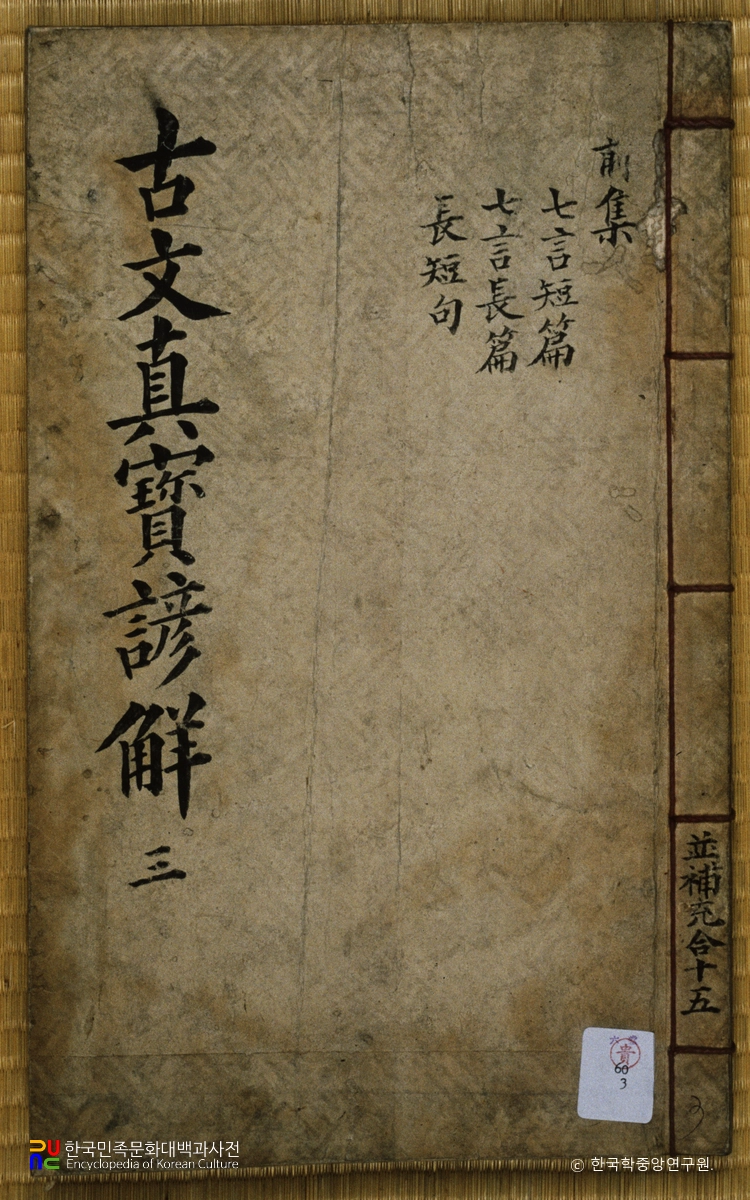 前集
七言短篇
七言長篇
長短句
古文真寶諺解 三
並補充合十五
貴
60
3
한국민족문화대백과사전
Encyclopedia of Korean Culture
© 한국학중앙연구원